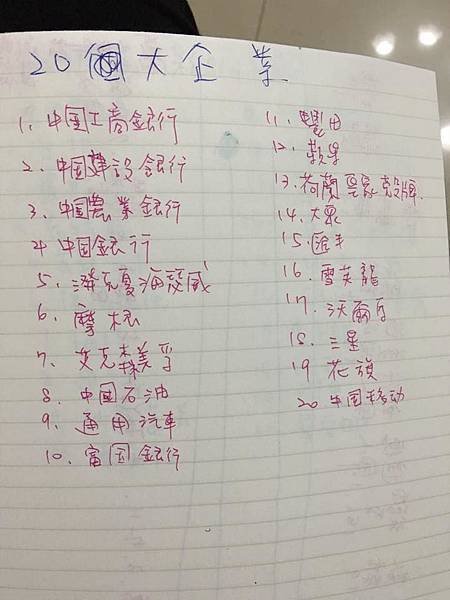 20個大企業
1. 中国工商銀行
2. 中国建設銀行
3. 中国農業銀行
4 中国銀行
5. 波克夏海瑟威
6. 摩根
7. 艾克森美孚
8. 中国石油
9. 通用汽車
10. 富国銀行
11. 豐田
12. 蘋果
13. 荷蘭皇家殼牌.
14. 大眾
15. 匯丰
16. 雪芙龍
17. 沃爾瑪
18. 三星
19 花旗
20 中国移动